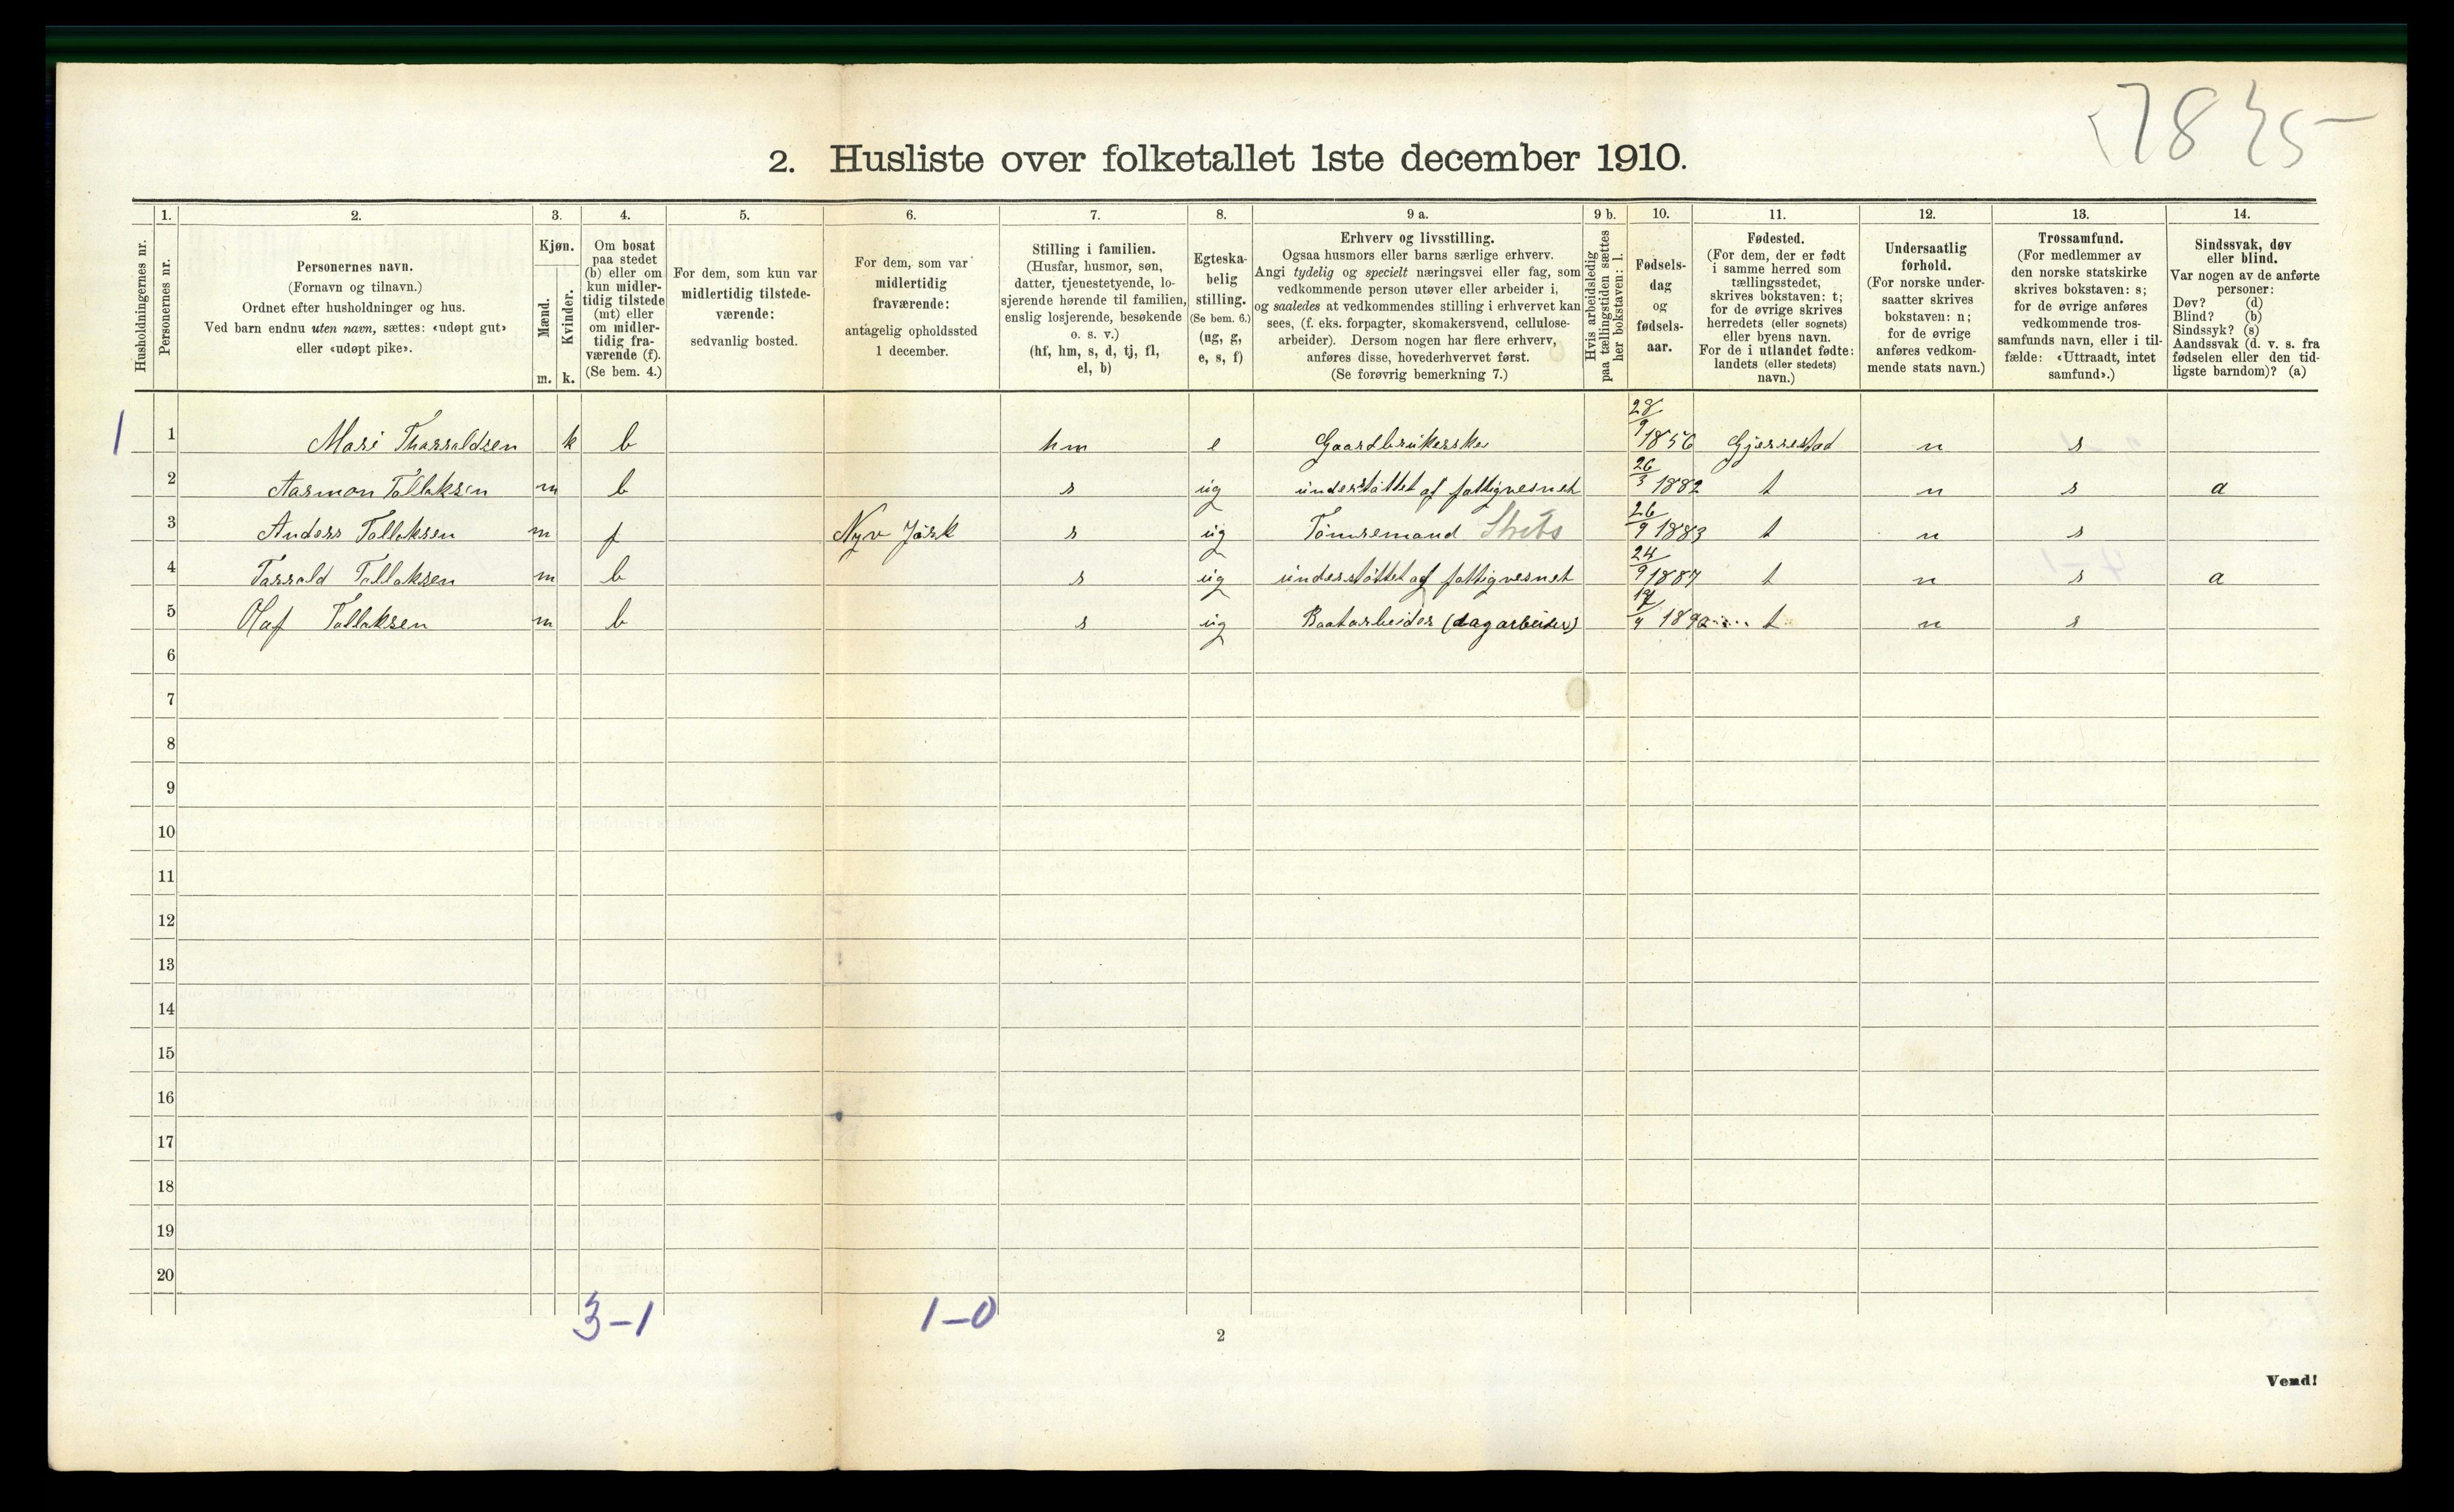 2. Husliste over folketallet 1ste december 1910.
1. 2. 3. 4. 5. 6. 7. 8. 9 a. 9 b. 10. 11. 12. 13. 14.
Husholdningernes nr.
Personernes nr.
Personernes navn.
(Fornavn og tilnavn.)
Ordnet efter husholdninger og hus.
Ved barn endnu uten navn, sættes: «udøpt gut»
eller «udøpt pike».
Kjøn.
Mænd.
Kvinder.
m. k.
Om bosat
paa stedet
(b) eller om
kun midler-
tidig tilstede
(mt) eller
om midler-
tidig fra-
værende (f).
(Se bem. 4.)
For dem, som kun var
midlertidig tilstede-
værende:
sedvanlig bosted.
For dem, som var
midlertidig
fraværende:
antagelig opholdssted
1 december.
Stilling i familien.
(Husfar, husmor, søn,
datter, tjenestetyende, lo-
sjerende hørende til familien,
enslig losjerende, besøkende
o. s. v.)
(hf, hm, s, d, tj, fl,
el, b)
Egteska-
belig
stilling.
(Se bem. 6.)
(ug, g,
e, s, f)
Erhverv og livsstilling.
Ogsaa husmors eller barns særlige erhverv.
Angi tydelig og specielt næringsvei eller fag, som
vedkommende person utøver eller arbeider i,
og saaledes at vedkommendes stilling i erhvervet kan
sees, (f. eks. forpagter, skomakersvend, cellulose-
arbeider). Dersom nogen har flere erhverv,
anføres disse, hovederhvervet først.
(Se forøvrig bemerkning 7.)
Hvis arbeidsledig
paa tællingstiden sættes
her bokstaven: l.
Fødsels-
dag
og
fødsels-
aar.
Fødested.
(For dem, der er født
i samme herred som
tællingsstedet,
skrives bokstaven: t;
for de øvrige skrives
herredets (eller sognets)
eller byens navn.
For de i utlandet fødte:
landets (eller stedets)
navn.)
Undersaatlig
forhold.
(For norske under-
saatter skrives
bokstaven: n;
for de øvrige
anføres vedkom-
mende stats navn.)
Trossamfund.
(For medlemmer av
den norske statskirke
skrives bokstaven: s;
for de øvrige anføres
vedkommende tros-
samfunds navn, eller i til-
fælde: «Uttraadt, intet
samfund».)
Sindssvak, døv
eller blind.
Var nogen av de anførte
personer:
Døv? (d)
Blind? (b)
Sindssyk? (s)
Aandssvak (d. v. s. fra
fødselen eller den tid-
ligste barndom)? (a)
1 1 Mari Tharraldsen k b hm e Gaardbrukerske 28/9 1856 Gjerrestad n s
2 Aasmon Tallaksen m b s ug understøttet af fattigvesnet 26/3 1882 t n s a
3 Anders Tallaksen m f Nyv Jørk s ug Tømremand 26/9 1883 t n s
4 Tarrald Tallaksen m b s ug understøttet af fattigvesnet 24/9 1887 t n s a
5 Olaf Tallaksen m b s ug Baatarbeider (dagarbeider) t n s
6
7
8
9
10
11
12
13
14
15
16
17
18
19
20
3-1 1-0
2
Vend!